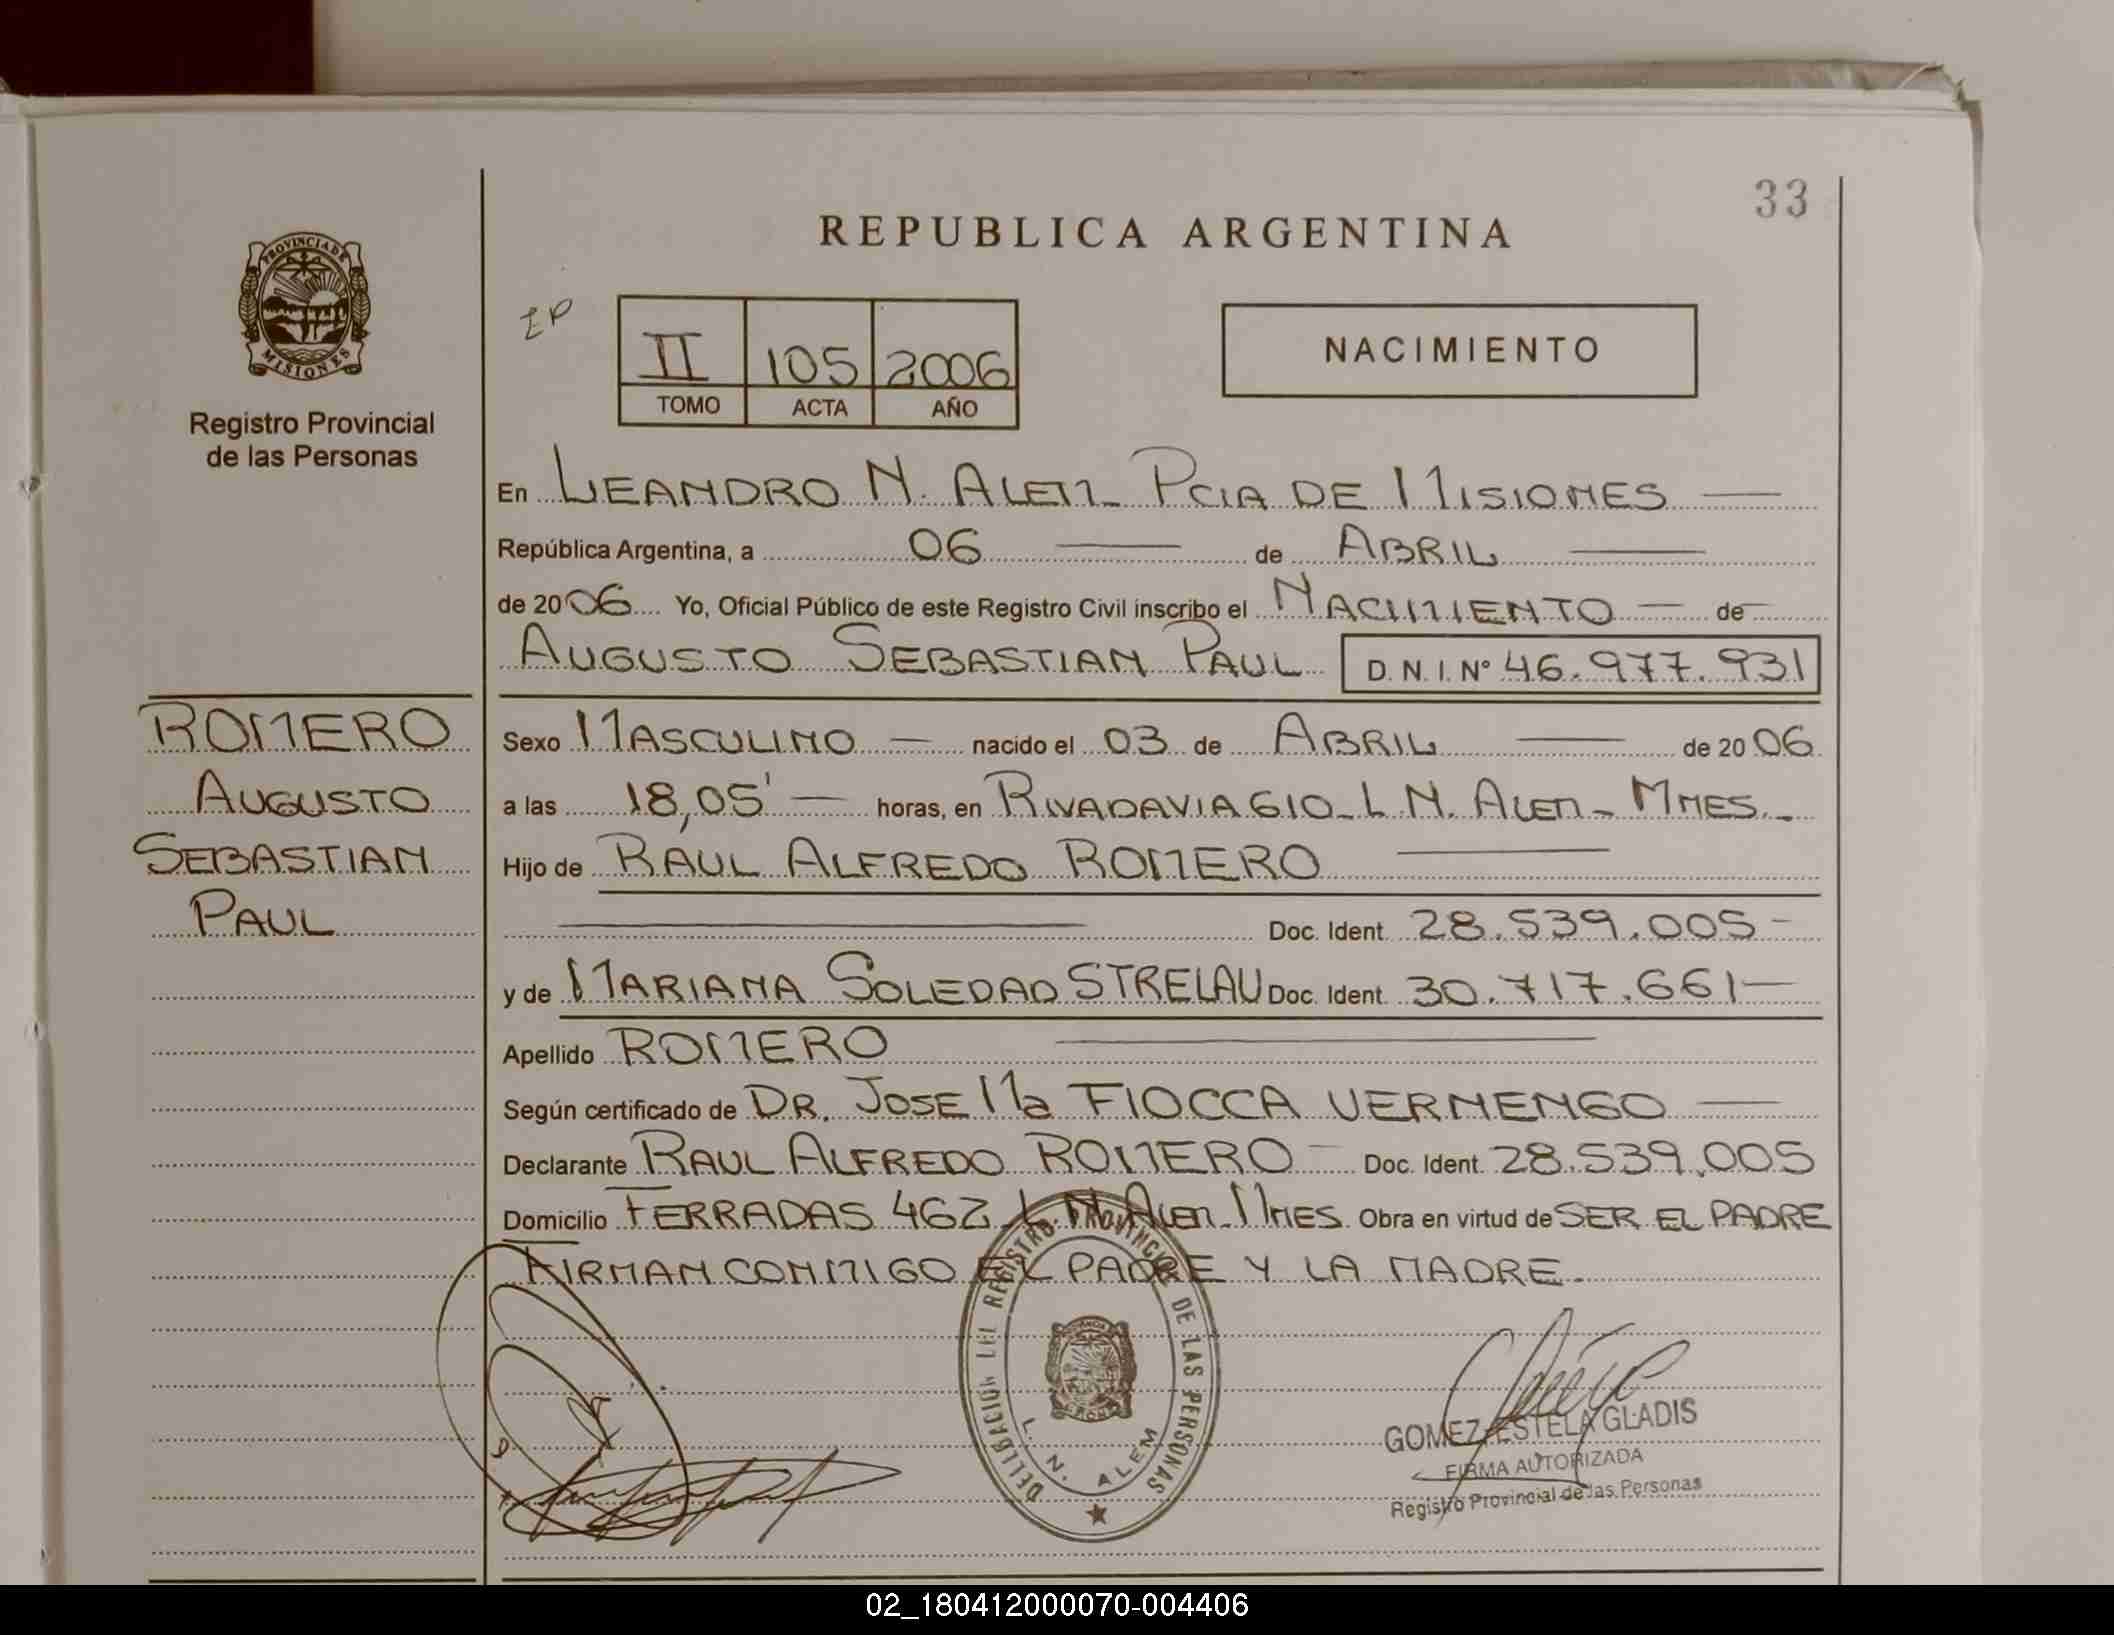 33
REPUBLICA ARGENTINA
PROVINCIA DE
MISIONES
Registro Provincial
de las Personas
II 105 2006
TOMO ACTA AÑO
NACIMIENTO
En LEANDRO N. ALEM - PCIA DE MISIONES
República Argentina, a 06 de ABRIL
de 2006 Yo, Oficial Público de este Registro Civil inscribo el NACIMIENTO de
AUGUSTO SEBASTIAN PAUL D.N.I. Nº 46.977.931
ROMERO
AUGUSTO
SEBASTIAN
PAUL
Sexo MASCULINO nacido el 03 de ABRIL de 2006
a las 18,05' horas, en RIVADAVIA 610 - L N. ALEM - MNES.
Hijo de RAUL ALFREDO ROMERO
Doc. Ident. 28.539.005
y de MARIANA SOLEDAD STRELAU Doc. Ident. 30.717.661
Apellido ROMERO
Según certificado de DR. JOSE Ma FIOCCA VERNENGO
Declarante RAUL ALFREDO ROMERO Doc. Ident. 28.539.005
Domicilio FERRADAS 462 L. N. ALEM - MNES. Obra en virtud de SER EL PADRE
FIRMAN CONMIGO EL PADRE Y LA MADRE.
DELEGACION DEL REGISTRO PROVINCIAL DE LAS PERSONAS
L. N. ALEM
GOMEZ, ESTELA GLADIS
FIRMA AUTORIZADA
Registro Provincial de las Personas
02_180412000070-004406